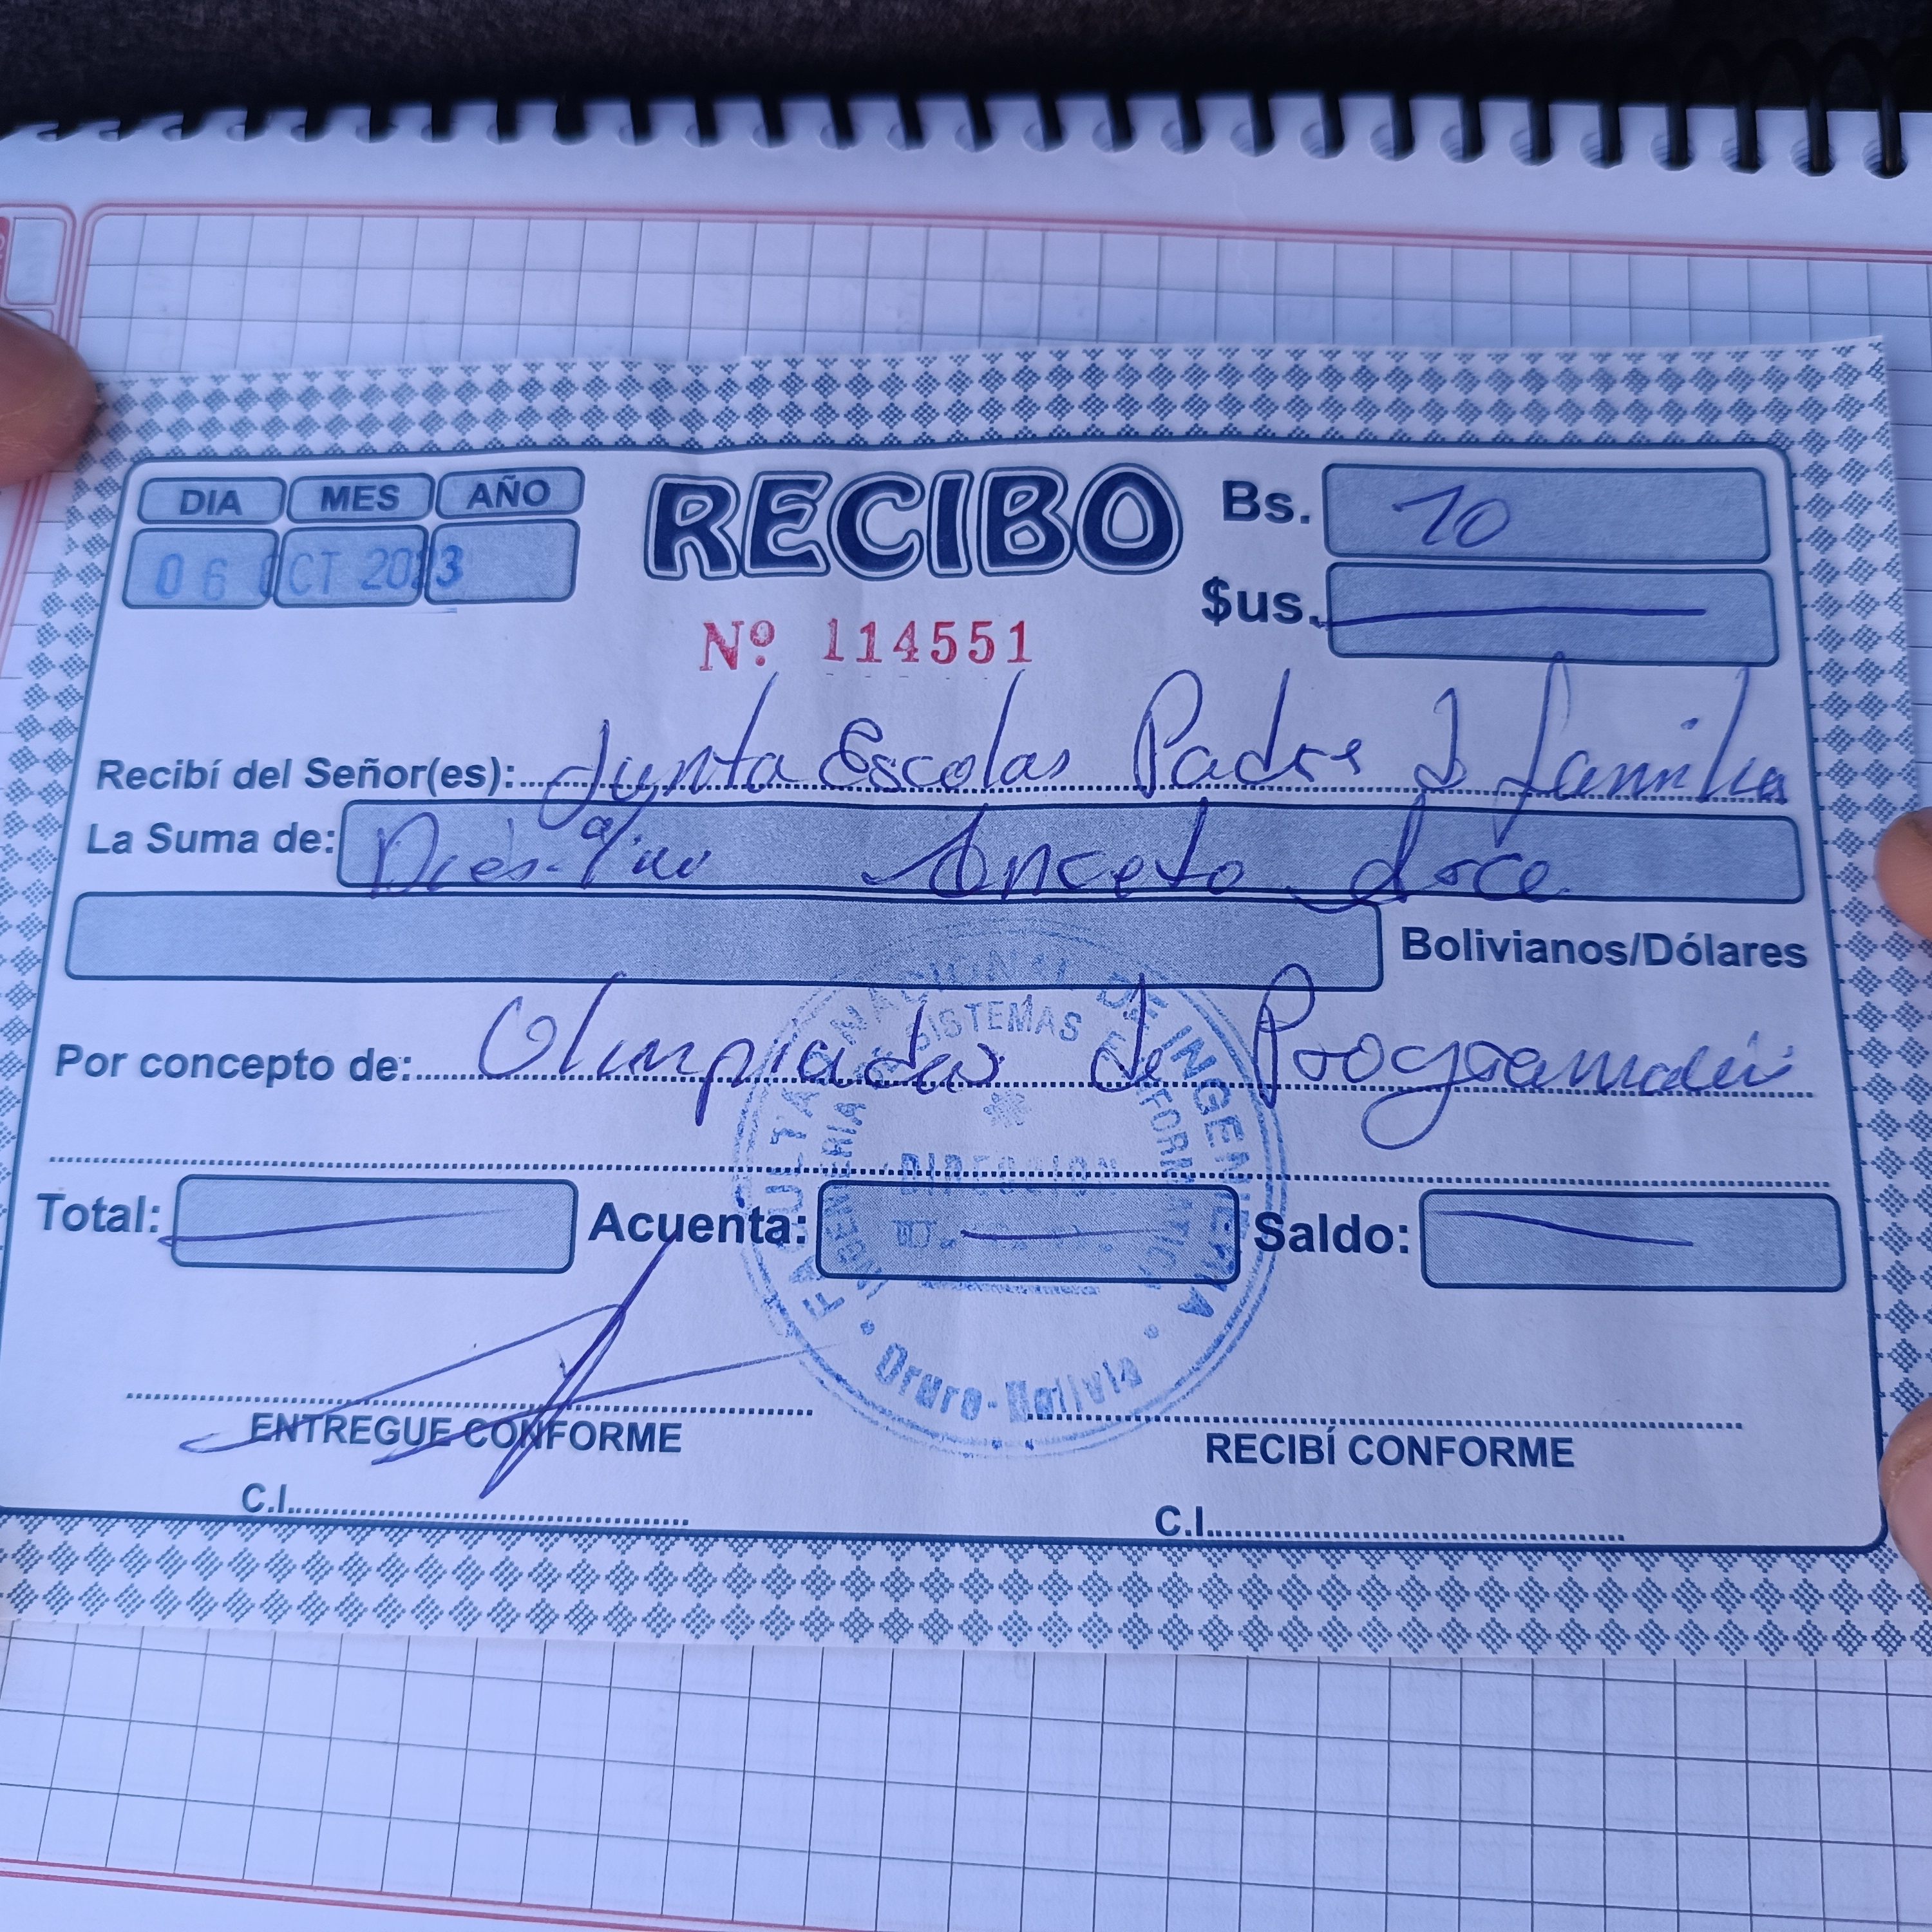 DIA MES AÑO RECIBO Bs. 10
06 OCT 2023 $us.
Nº 114551
Recibí del Señor(es): Junta Escolar Padre d familia
La Suma de: Aniceto Arce
Bolivianos/Dólares
Por concepto de: Olimpiadas de Programación
Total: Acuenta: Saldo:
ENTREGUE CONFORME RECIBÍ CONFORME
C.I. C.I.
FACULTAD NACIONAL DE INGENIERIA
INGENIERIA SISTEMAS INFORMATICA
DIRECCION
Oruro - Bolivia